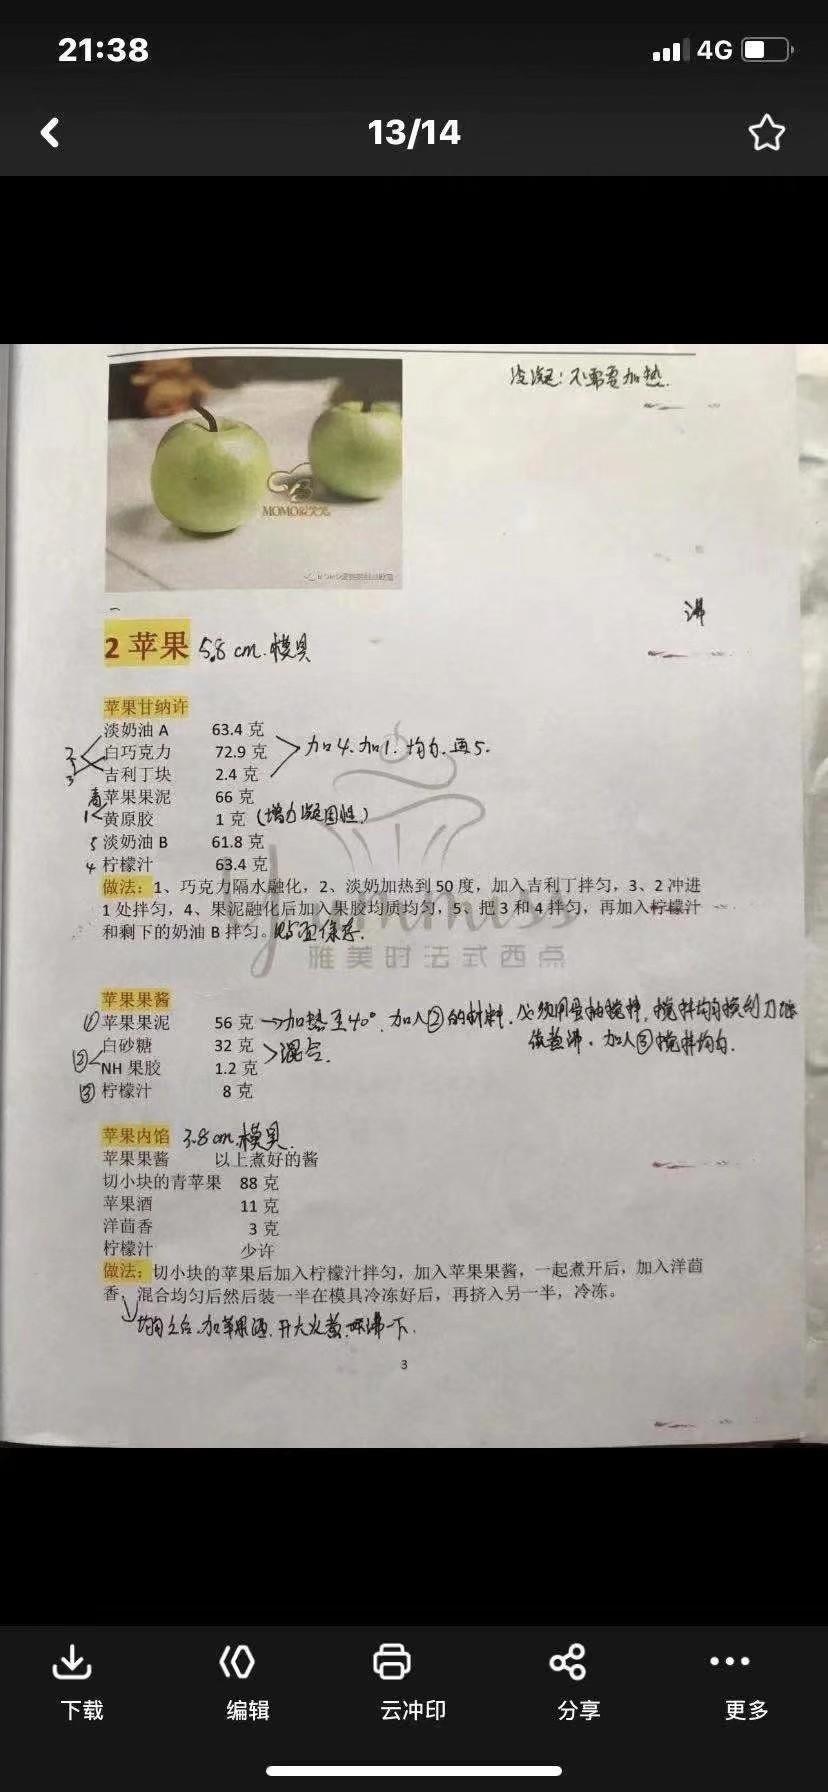 21:38
4G
13/14
冷凝：不需要加热.
MOMO
沸
2 苹果 5.8 cm.模具
苹果甘纳许
淡奶油 A 63.4 克
白巧克力 72.9 克
加4.加1.均匀.再5.
吉利丁块 2.4 克
青苹果果泥 66 克
黄原胶 1 克 (增加凝固性)
5 淡奶油 B 61.8 克
4 柠檬汁 63.4 克
做法：1、巧克力隔水融化，2、淡奶加热到 50 度，加入吉利丁拌匀，3、2 冲进
1 处拌匀，4、果泥融化后加入果胶均质均匀，5、把 3 和 4 拌匀，再加入柠檬汁
和剩下的奶油 B 拌匀。贴面保存.
Yummiss
雅美时法式西点
苹果果酱
①苹果果泥 56 克 →加热至40°.加入②的材料.必须用蛋抽搅拌.搅拌均匀
白砂糖 32 克
② >混合.
煮沸.加入③搅拌均匀.
NH 果胶 1.2 克
③ 柠檬汁 8 克
苹果内馅 3.8cm.模具.
苹果果酱 以上煮好的酱
切小块的青苹果 88 克
苹果酒 11 克
洋茴香 3 克
柠檬汁 少许
做法：切小块的苹果后加入柠檬汁拌匀，加入苹果果酱，一起煮开后，加入洋茴
香，混合均匀后然后装一半在模具冷冻好后，再挤入另一半，冷冻。
均匀之后.加苹果酒.开大火煮.沸一下.
3
下载
编辑
云冲印
分享
更多